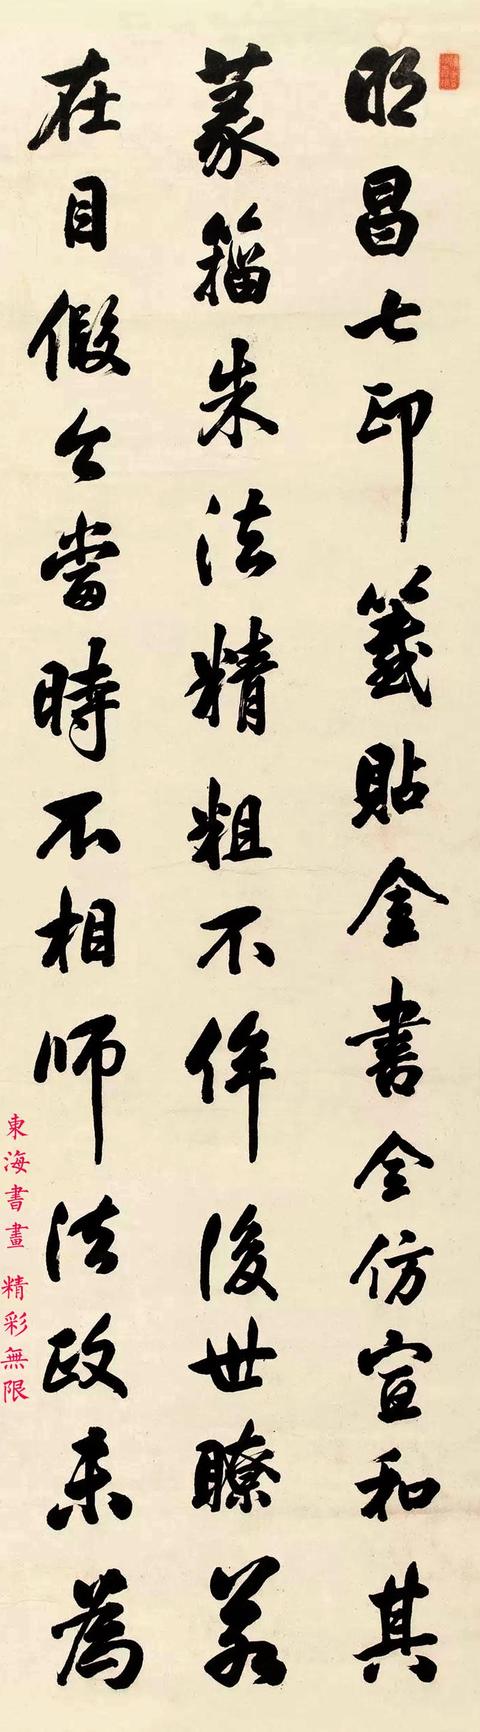 明昌七印籤貼金書全仿宣和其
篆籀朱法精粗不侔後世瞭若
在目假令當時不相師法政未為
東海書畫 精彩無限